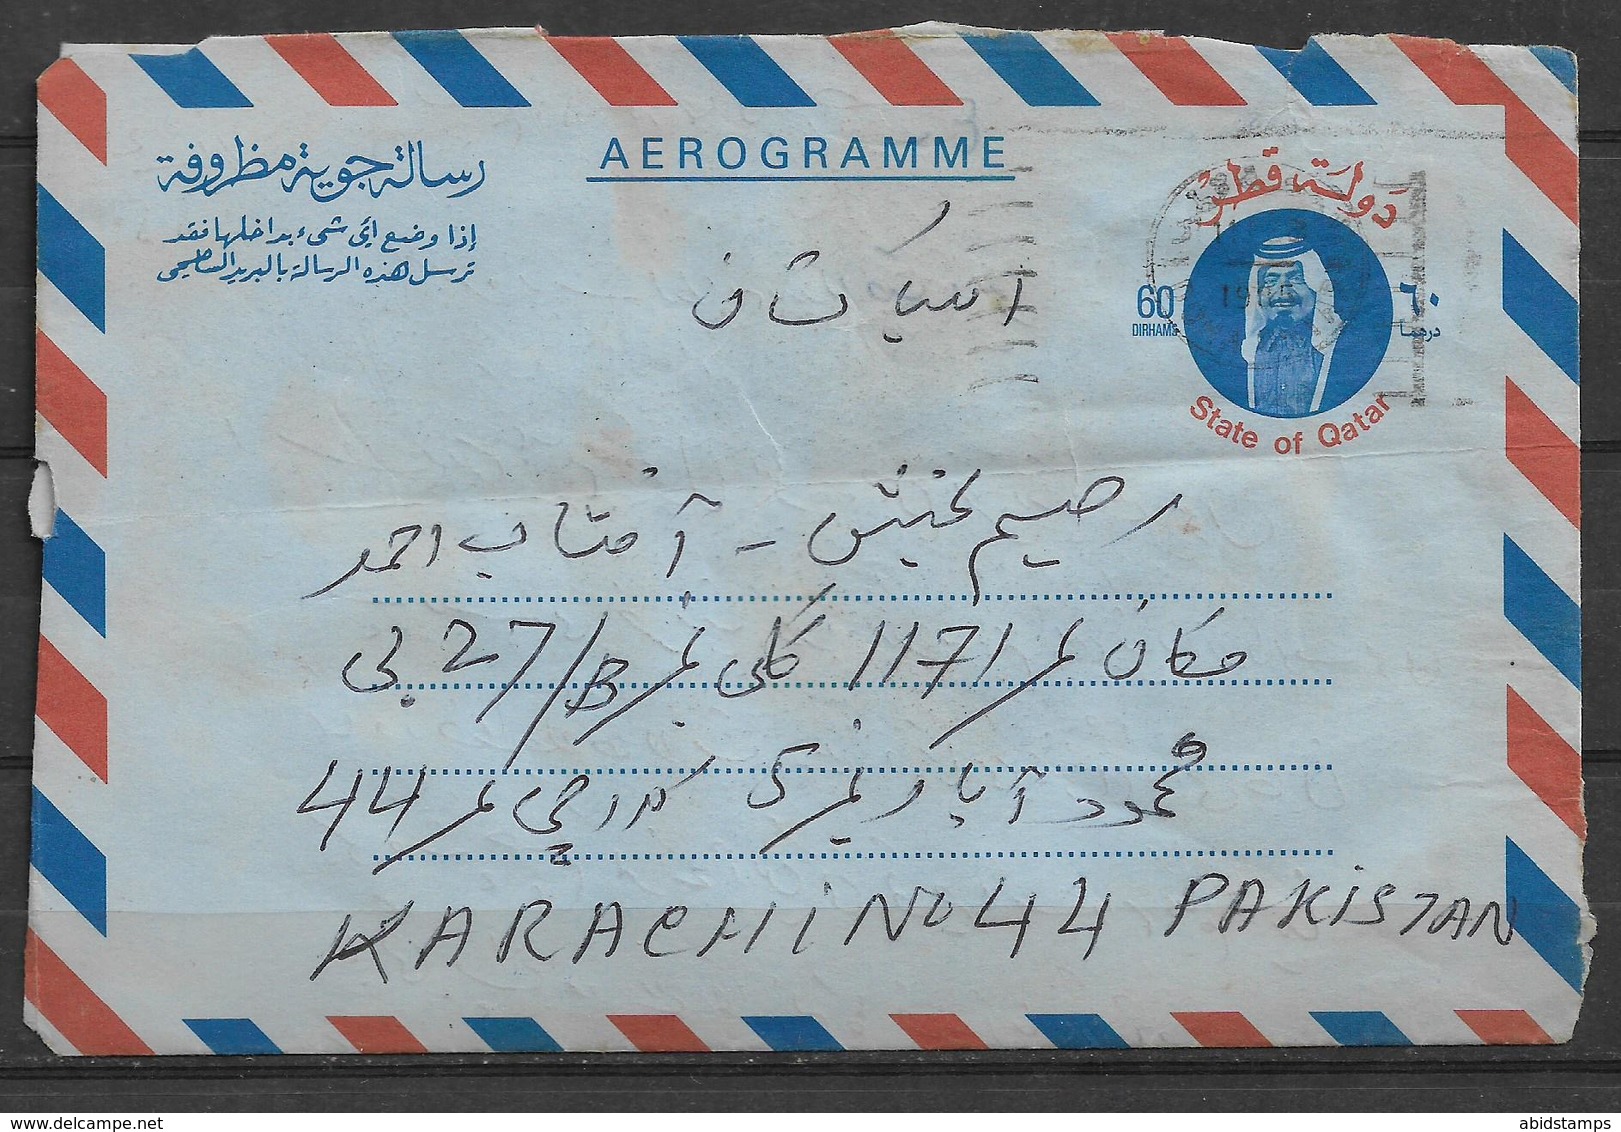 AEROGRAMME
رسالة جوية مظروفة
إذا وضع أي شيء بداخلها فقد
ترسل هذه الرسالة بالبريد السطحي
دولة قطر
60
DIRHAMS
٦٠
درهما
State of Qatar
رحیم بخش - آفتاب احمد
مکان نمبر 1171 گلی نمبر 27/B بی
محمود آباد نمبر کراچی نمبر 44
KARACHI No 44 PAKISTAN
delcampe.net
abidstamps